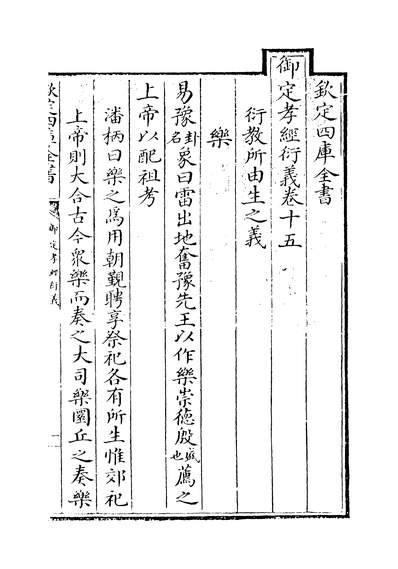 欽定四庫全書
御定孝經衍義卷十五
衍教所由生之義
樂
易豫卦名象曰雷出地奮豫先王以作樂崇德殷盛也薦之
上帝以配祖考
潘柄曰樂之為用朝覲聘享祭祀各有所生惟郊祀
上帝則大合古今衆樂而奏之大司樂圜丘之奏樂
欽定四庫全書
御定孝經衍義
一